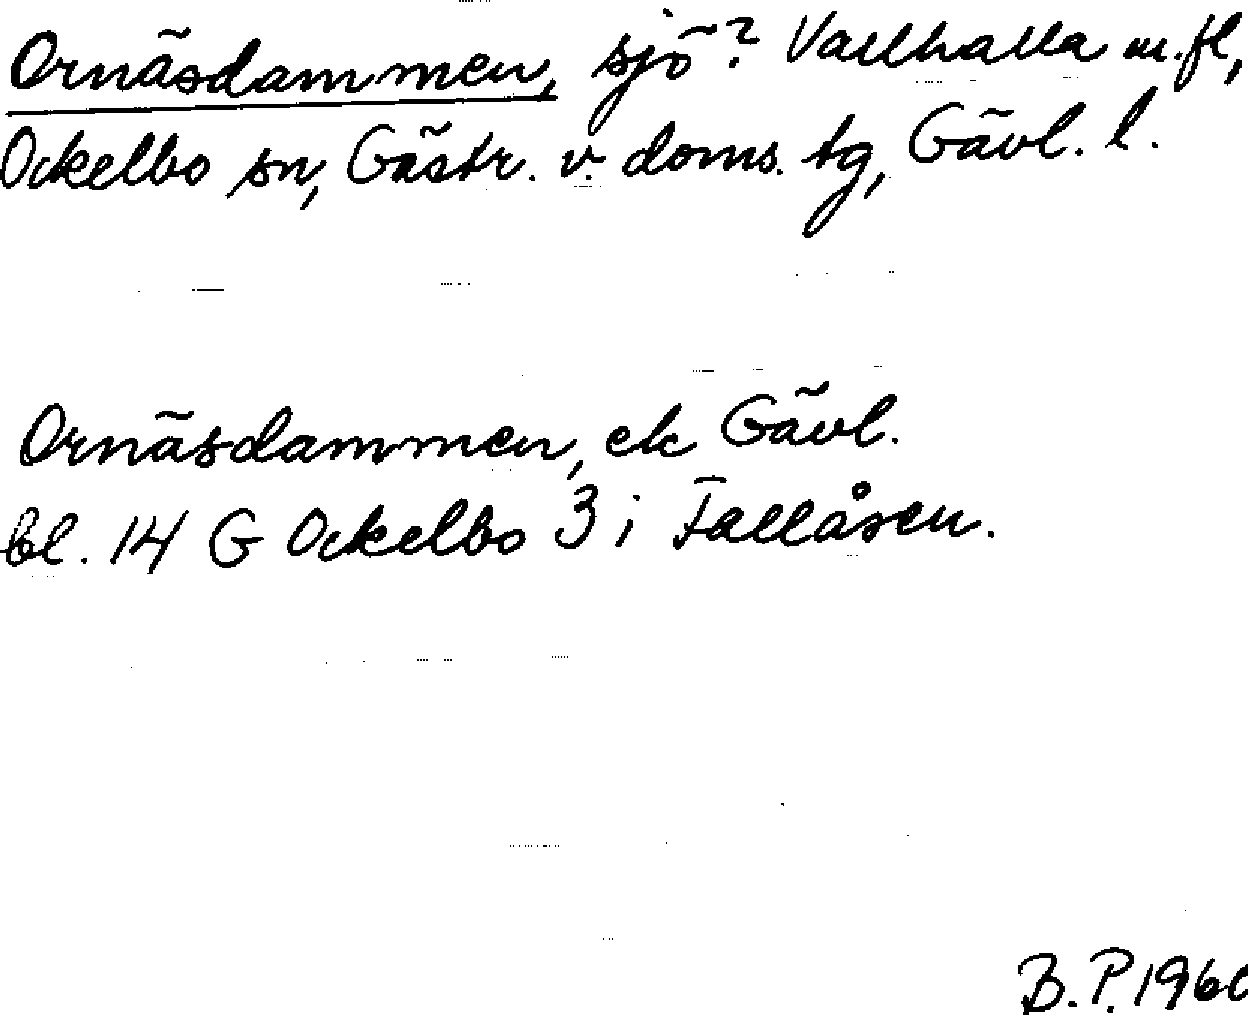 Ornäsdammen, sjö? Vallhalla m.fl,
Ockelbo sn, Gästr. v. doms. tg, Gävl. l.
Ornäsdammen, ek Gävl.
bl. 14 G Ockelbo 3 i Fallåsen.
B.P. 1960